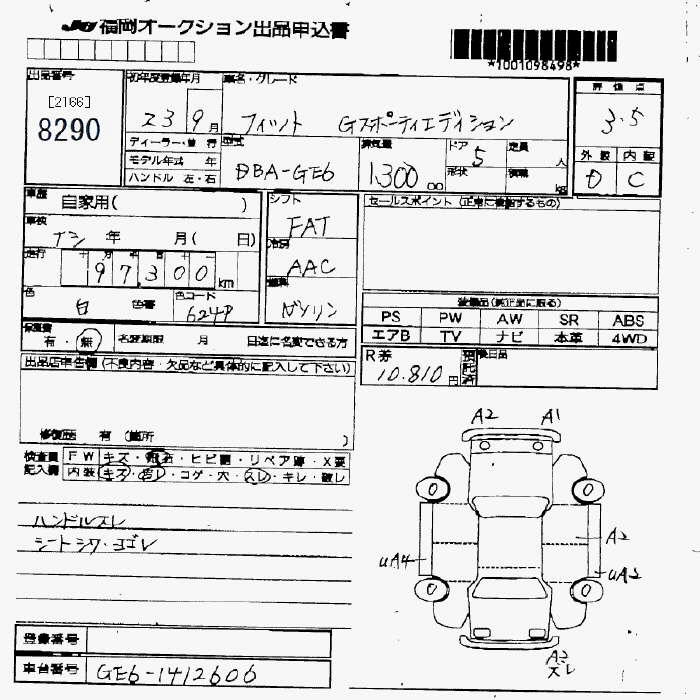 JU福岡オークション出品申込書
*1001098498*
出品番号
[2166]
8290
初年度登録年月
23 9月
車名・グレード
フィット Gスポーティエディション
評価点
3.5
外装 内装
D C
ディーラー・並 行
モデル年式 年
ハンドル 左・右
型式
DBA-GE6
排気量
1300 cc
ドア 5
形状
定員 人
積載 kg
車歴 自家用( )
車検 ナシ 年 月( 日)
走行 97,300 km
色 白 色番
色コード 624P
シフト
FAT
冷房
AAC
燃料
ガソリン
セールスポイント (正常に機能するもの)
装備品(純正品に限る)
PS PW AW SR ABS
エアB TV ナビ 本革 4WD
保証書 有・無
名変期限 月 日迄に名変できる方
R券 10.810円 預託済
後日品
出品店申告欄(不良内容・欠品など具体的に記入して下さい)
修復歴 有 (箇所 )
検査員記入欄
FW キズ・飛石・ヒビ割・リペア跡・X要
内装 キズ・汚レ・コゲ・穴・スレ・キレ・破レ
ハンドルスレ
シートシワ・ヨゴレ
A2 A1
A2
UA4 UA2
A2
スレ
登録番号
車台番号 GE6-1412606